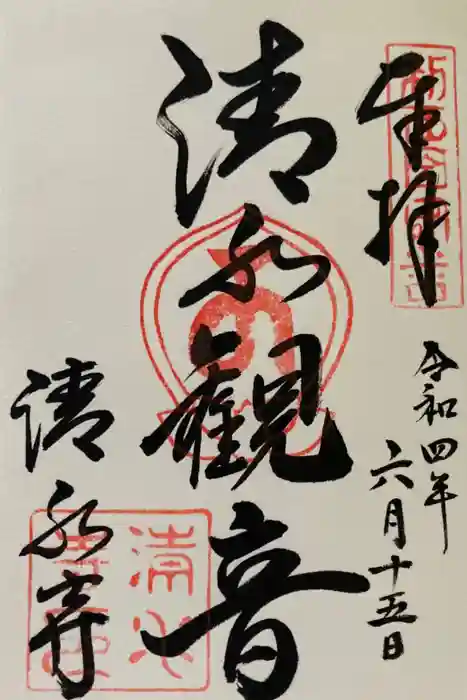 奉拝
令和四年
六月十五日
清水観音
清水寺